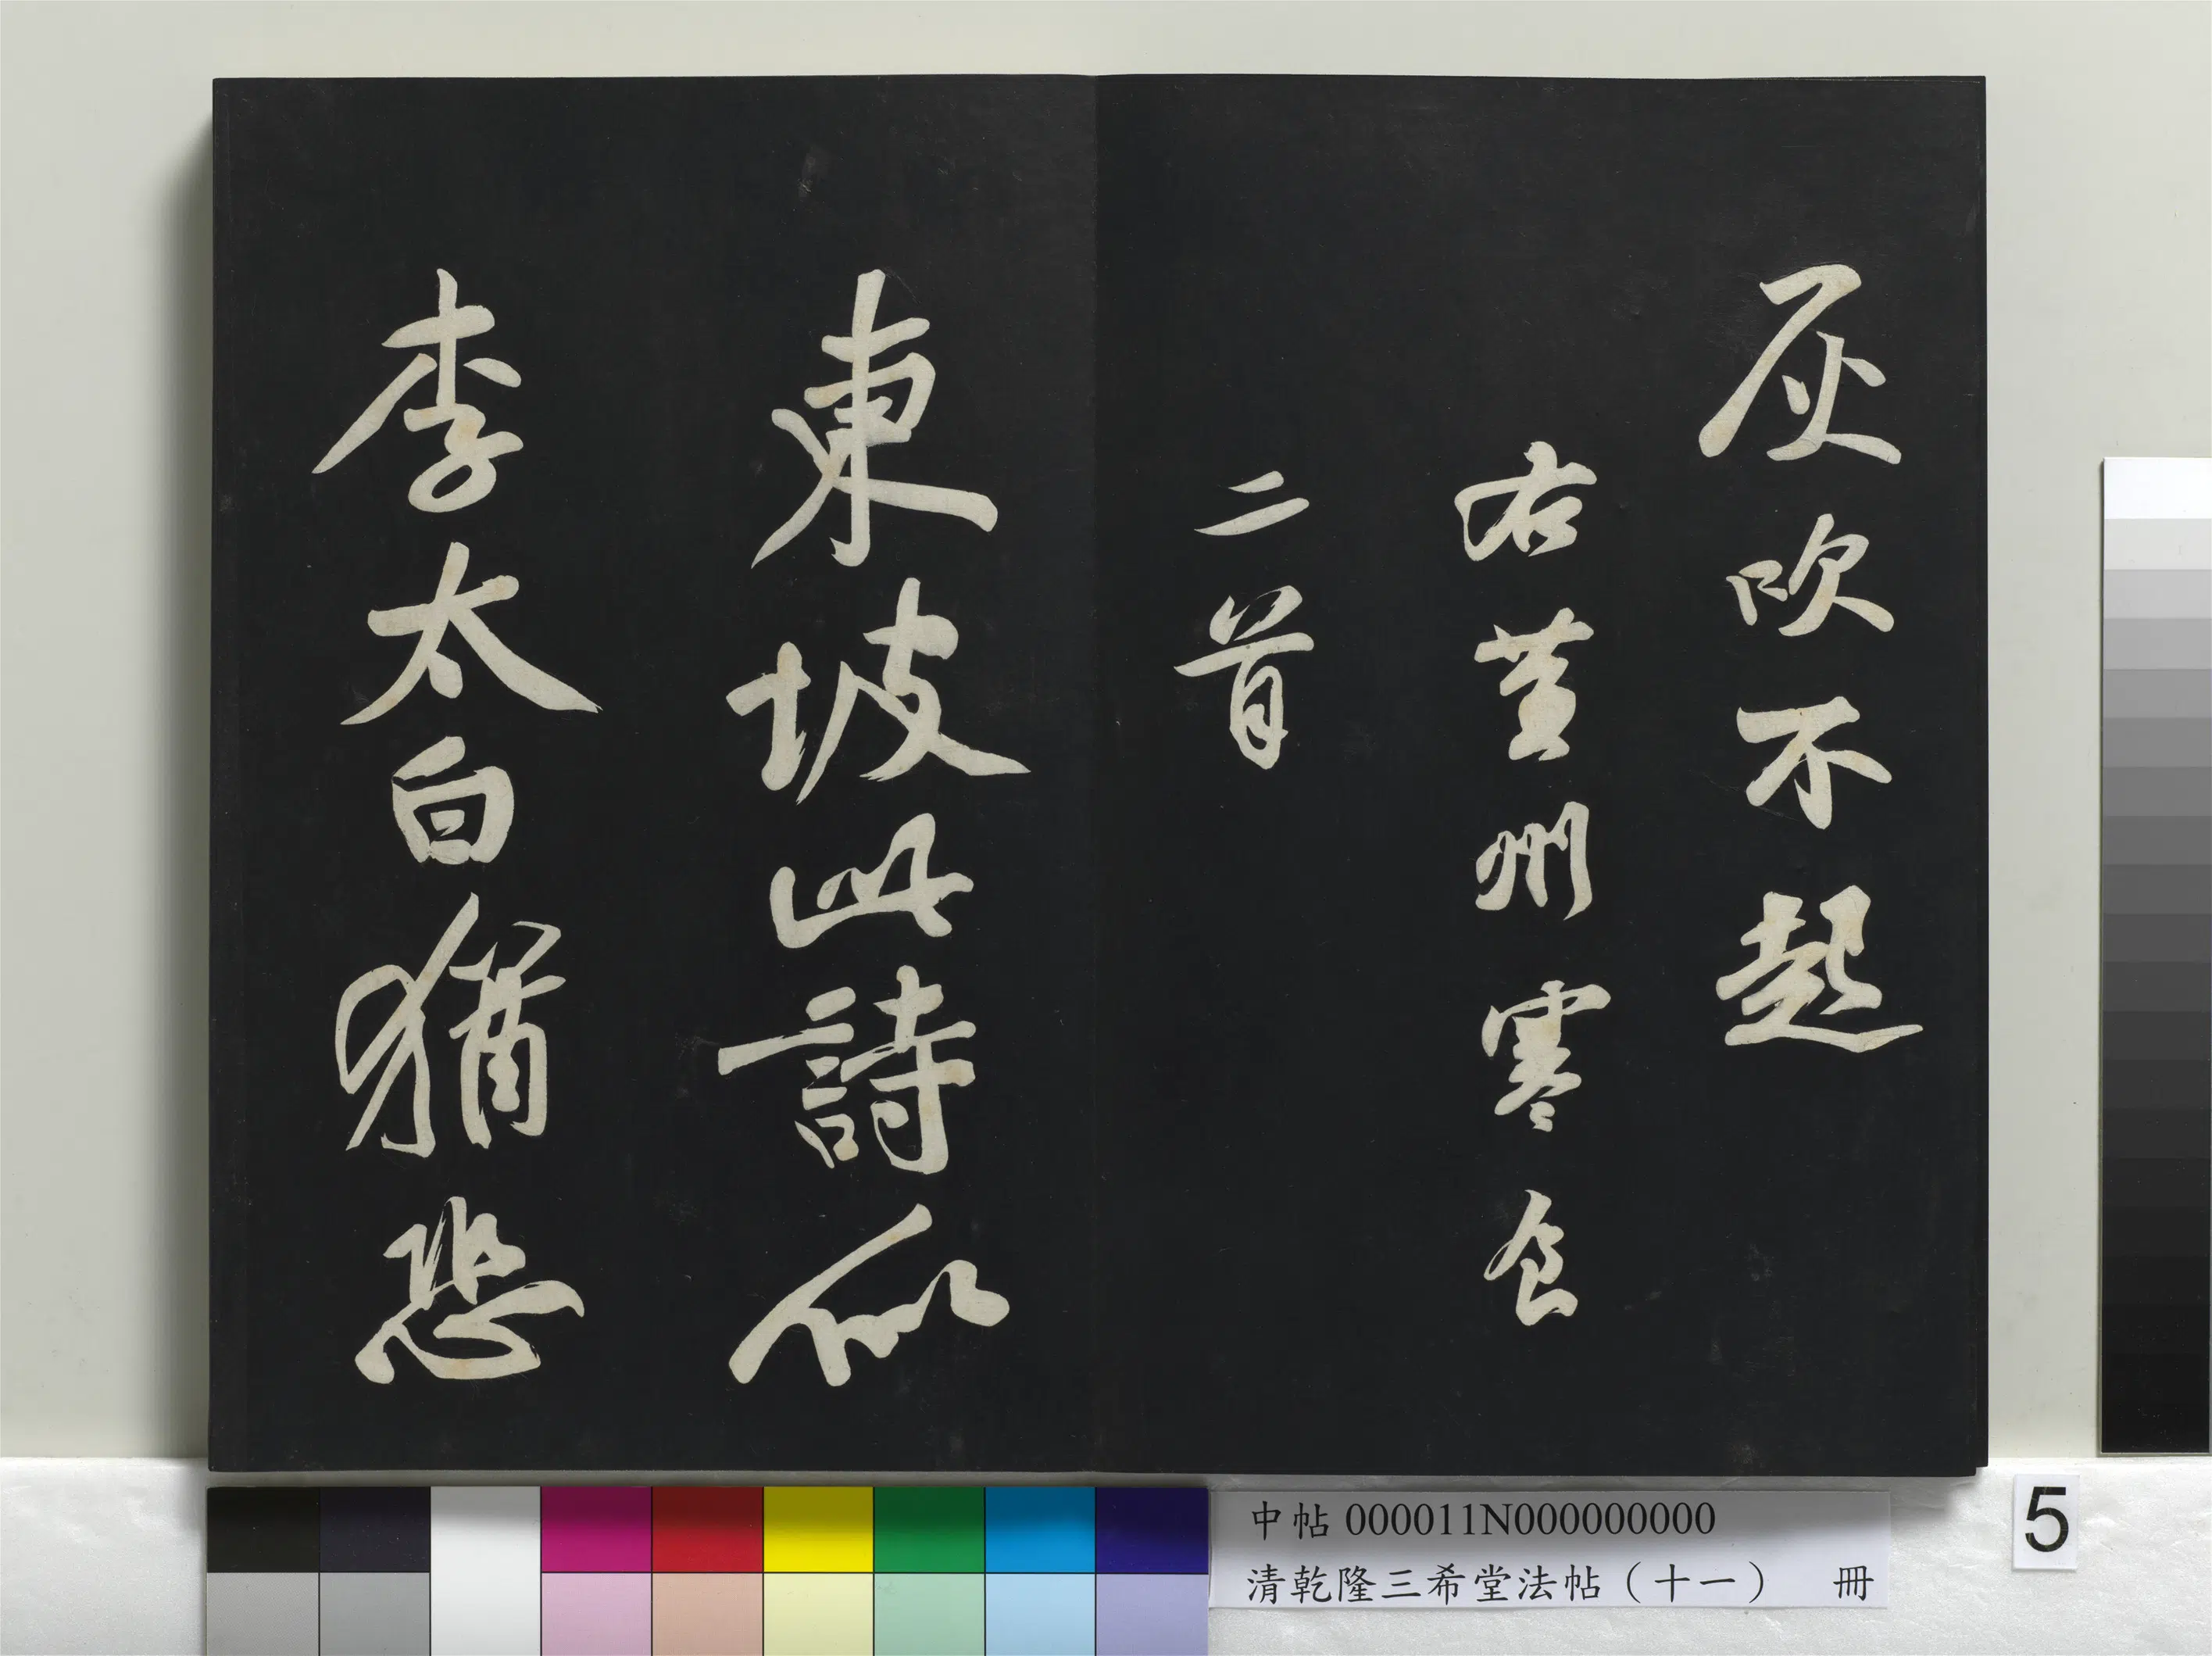 灰吹不起
右黃州寒食
二首
東坡此詩似
李太白猶恐
中帖 000011N000000000
清乾隆三希堂法帖（十一） 冊
5